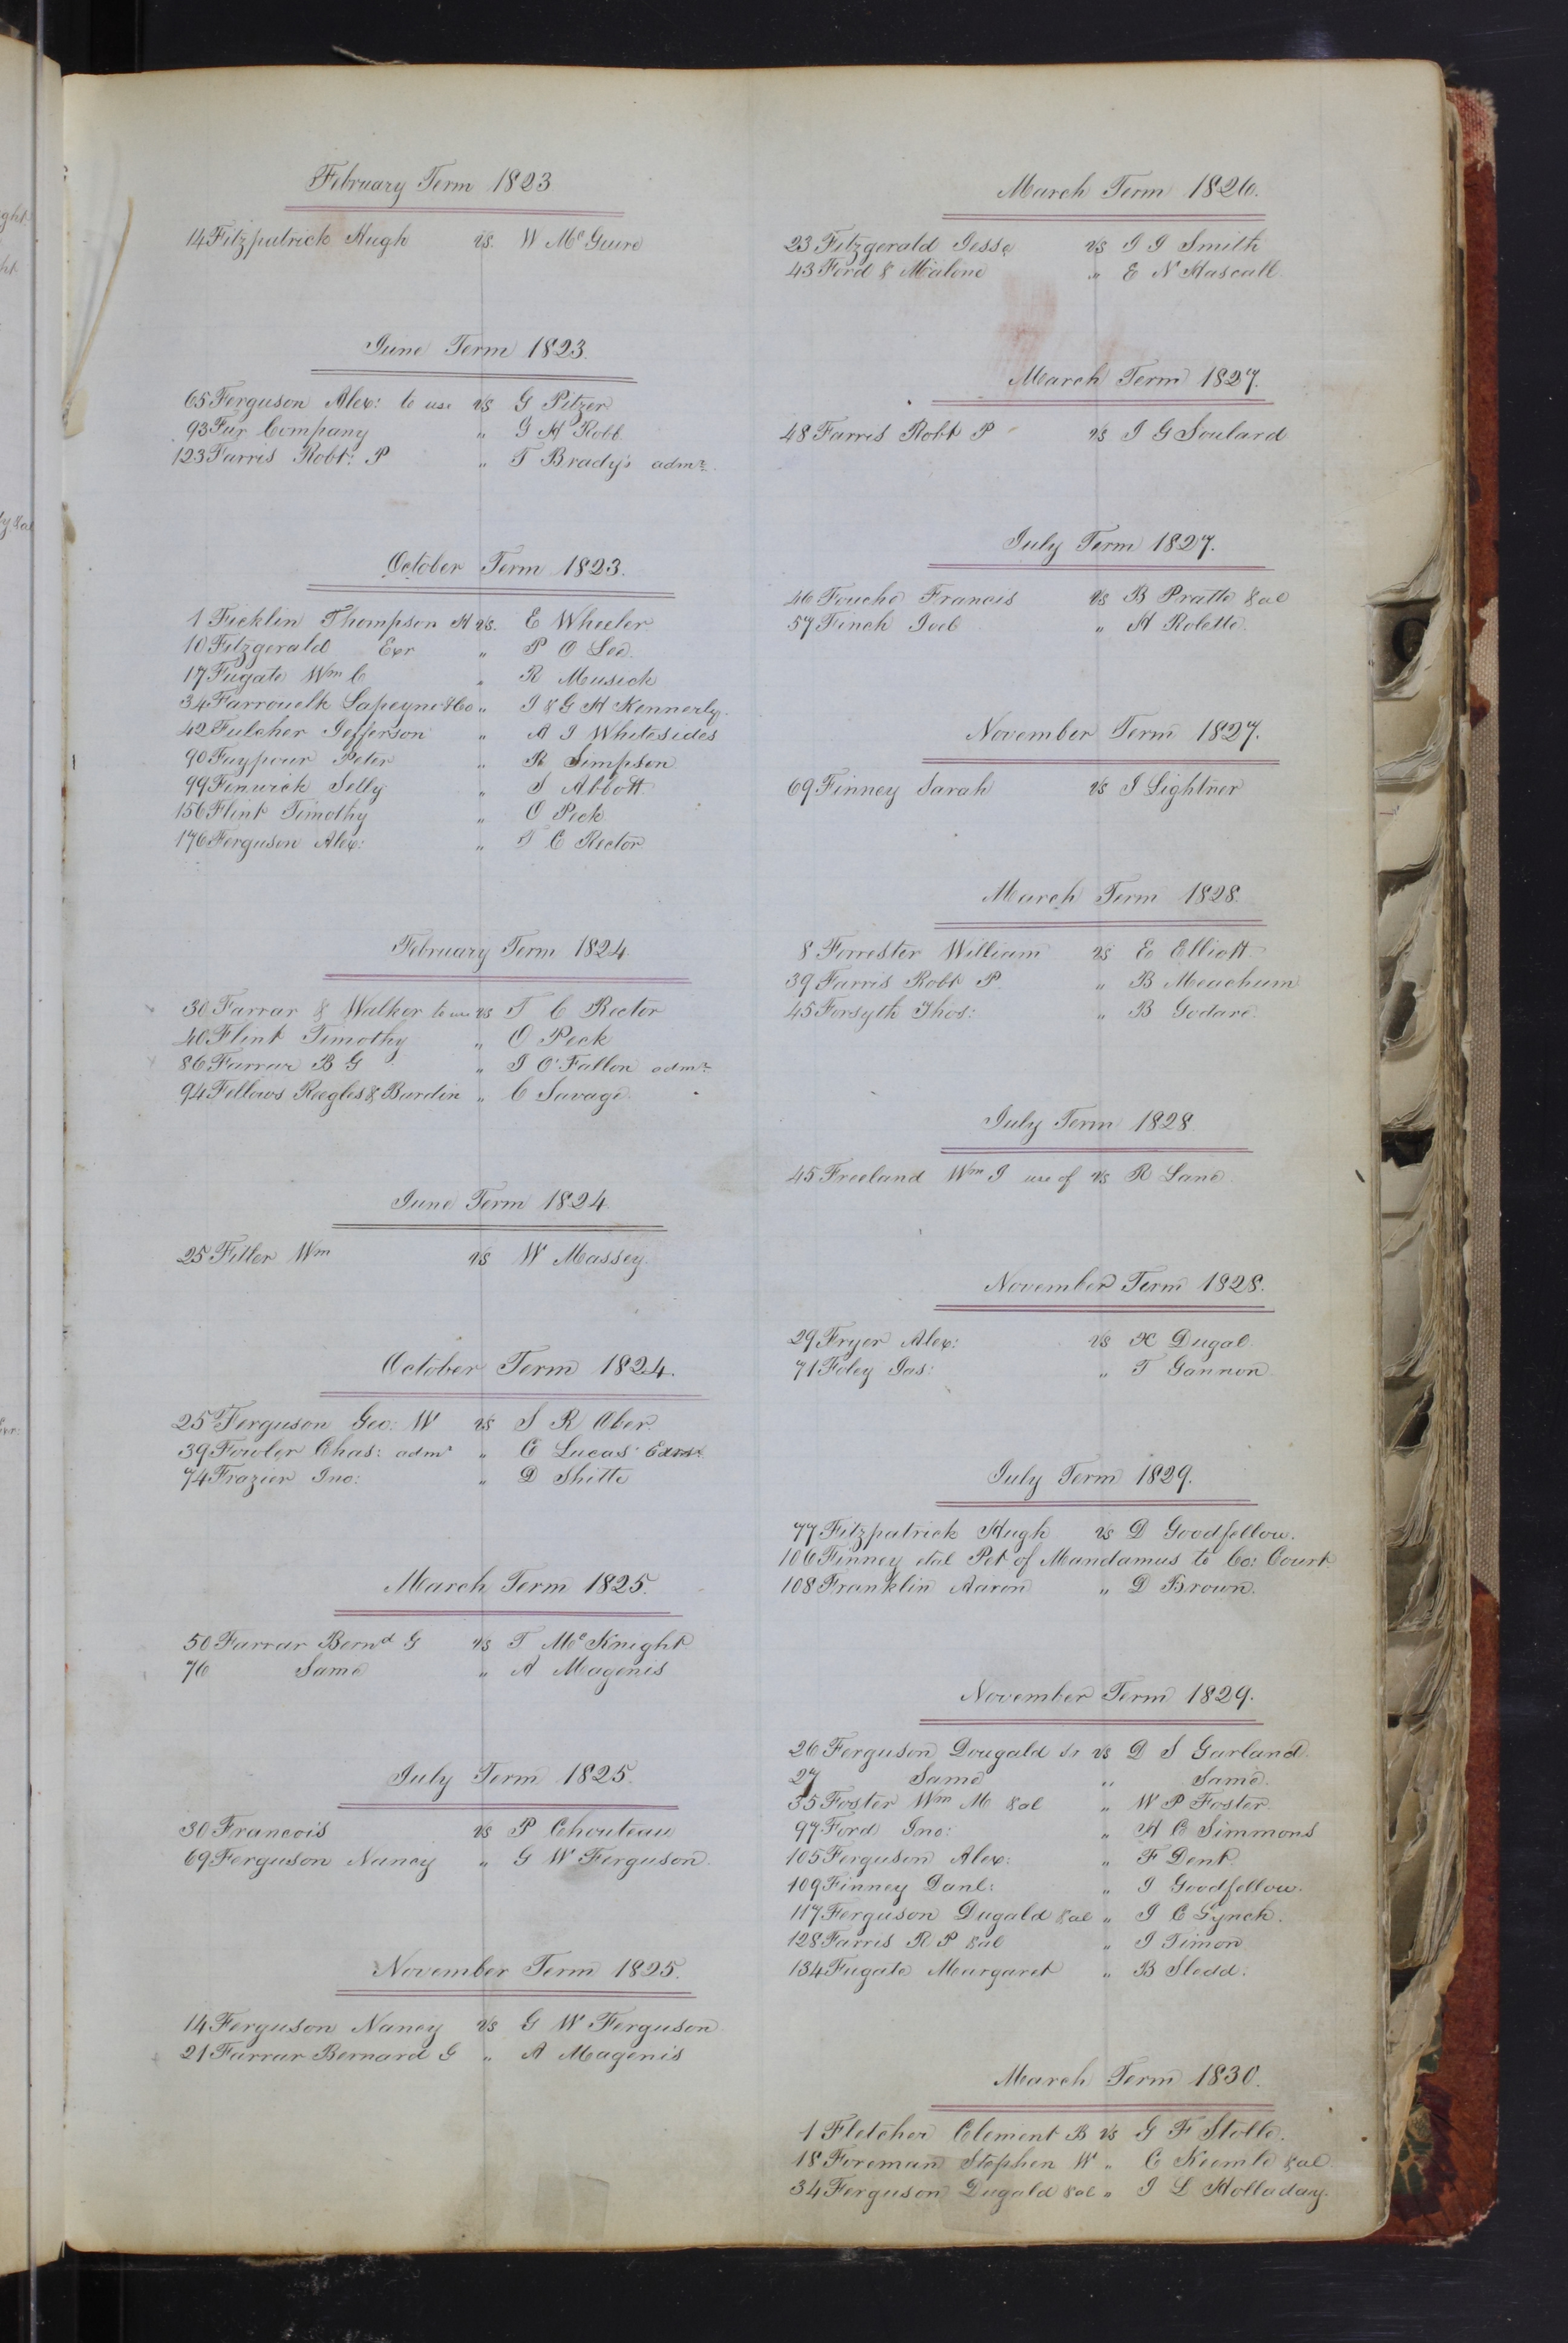 February Term 1823
14 Fitzpatrick Hugh vs. W McGuire
June Term 1823.
65 Ferguson Alex: to use vs G Pitzer
93 Fur Company " G H Robb
123 Farris Robt: P " T Brady's admr.
October Term 1823.
1 Ficklin Thompson H vs. E Wheeler.
10 Fitzgerald Exr " P O Lee.
17 Fugate Wm C " R Musick
34 Farrouelk Lapeyne & Co " J & G H Kennerly.
42 Fulcher Jefferson " A J Whitesides
90 Faypour Peter " R Simpson
99 Fenwick Selly " S Abbott
156 Flint Timothy " O Peck
176 Ferguson Alex: " T C Rector
February Term 1824.
30 Farrar & Walker to use vs T C Rector
40 Flint Timothy " O Peck
86 Farrar B G " J O'Fallon admr.
94 Fellows Reegles & Burdin " C Savage.
June Term 1824.
25 Filler Wm vs W Massey.
October Term 1824.
25 Ferguson Geo: W vs S R Ober.
39 Fowler Chas: admr " C Lucas'
74 Frazier Jno: " D Shitte
March Term 1825.
50 Farrar Bernd G vs T McKnight
76 Same " A Magenis
July Term 1825.
30 Francois vs P Chouteau
69 Ferguson Nancy " G W Ferguson.
November Term 1825.
14 Ferguson Nancy vs G W Ferguson
21 Farrar Bernard G " A Magenis
March Term 1826.
23 Fitzgerald Jesse vs J J Smith
43 Ford & Malone " E N Hascall.
March Term 1827.
48 Farris Robt P vs J G Soulard
July Term 1827.
46 Fouche Francis vs B Pratte & al
57 Finch Joel " H Rolette.
November Term 1827.
69 Finney Sarah vs J Lightner
March Term 1828.
8 Forrester William vs E Elliott
39 Farris Robt P. " B Meachum
45 Forsyth Thos: " B Godare.
July Term 1828.
45 Freeland Wm J use of vs R Lane.
November Term 1828.
29 Fryer Alex: vs X Dugal.
71 Foley Jas: " T Gannon
July Term 1829.
77 Fitzpatrick Hugh vs D Goodfellow.
106 Finney etal Pet of Mandamus to Co: Court
108 Franklin Aaron " D Brown.
November Term 1829.
26 Ferguson Dougald Sr vs D S Garland.
27 Same " Same.
35 Foster Wm M & al " W P Foster.
97 Ford Jno: " H C Simmons
105 Ferguson Alex: " F Dent.
109 Finney Danl: " J Goodfellow.
117 Ferguson Dugald & al " J C Lynch.
128 Farris R P & al " J Timon
134 Fugate Margaret " B Sledd.
March Term 1830.
1 Fletcher Clement B vs G F Stolle.
18 Foreman Stephen W " C Keemle & al.
34 Ferguson Dugald & al " J L Holladay.